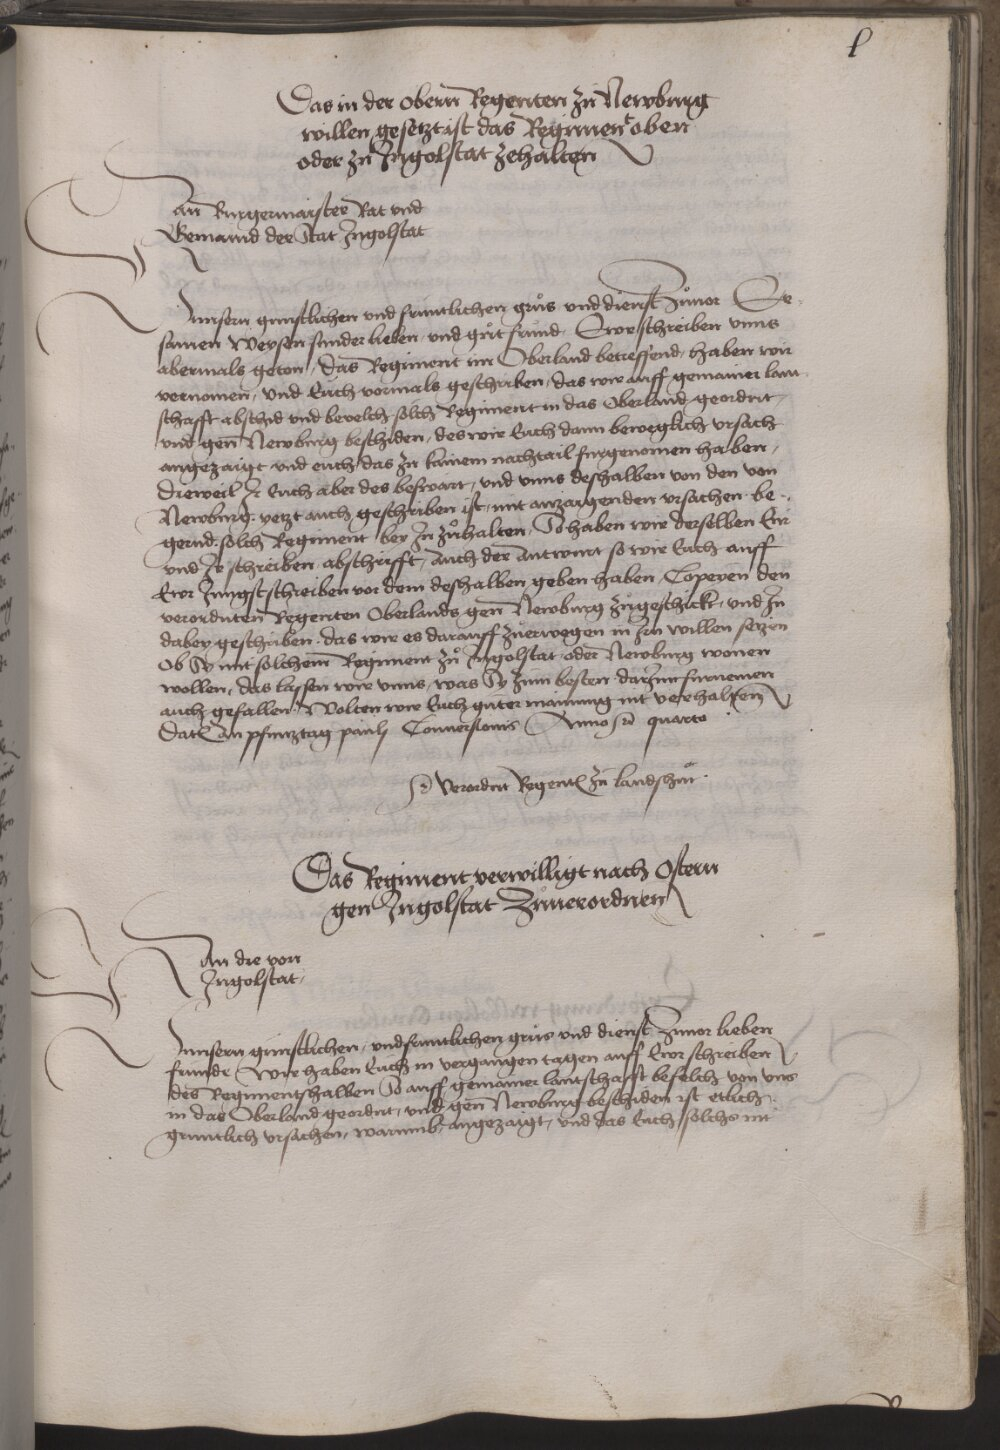 l
Das in der obern Regenten zu Newburg
willen gesetzt ist das Regiment oben
oder zu Ingolstat zehalten
An Burgermaister Rat und
Gemaind der Stat Ingolstat
Unnsern gunstlichen und fruntlichen grus und dienst zuuor Er-
samen Weysen sunder lieben und gut frund. Ewr schreiben unns
abermals geton, das Regiment im Oberland betreffend, haben wir
vernomen, und Euch vormals geschriben, das wir auff gemainer lann
schafft abschid und bevelch solch Regiment in das Oberland geordnt,
und gen Newburg beschiden, des wir Euch dann beweglich ursach
angezaigt und euch das zu kainem nachtail furgenomen haben,
Dieweil Ir Euch aber des beswart, und unns deshalben von den von
Newburg. yetzt auch geschriben ist, mit anzaigenden ursachen be-
gernd. solch Regiment bey In zuhalten, So haben wir derselben Eur
und Ir schreiben abschrifft, auch der Antwurt so wir Euch auff
Ewr Jungst schreiben vor dem deshalben geben haben, Copeyen den
verordnten Regenten Oberlands gen Newburg zugeschickt, und In
dabey geschriben. das wir es darauff zuerwegen in Irn willen setzen
Ob Sy mit solchem Regiment zu Ingolstat oder Newburg wonen
wollen, das lassen wir unns, was Sy zum besten darInn furnemen
auch gefallen. Wolten wir Euch guter mainung nit verhalten
Dat an pfintztag pauli Conversionis Anno quarto
Verordnt Regent zu landshut.
Das Regiment verwilligt nach Ostern
gen Ingolstat Zuuerordnen
An die von
Ingolstat,
Unnsern gunstlichen, und fruntlichen grus und dienst zuuor lieben
frunde Wir haben Euch in vergangen tagen auff Ewr schreiben
des Regimentshalben So auff gemainer lantschafft befelch von uns
in das Oberland geordnt, und gen Newburg beschiden ist etlich
gruntlich ursachen, warumb, angezaigt, und das Euch solchs nit